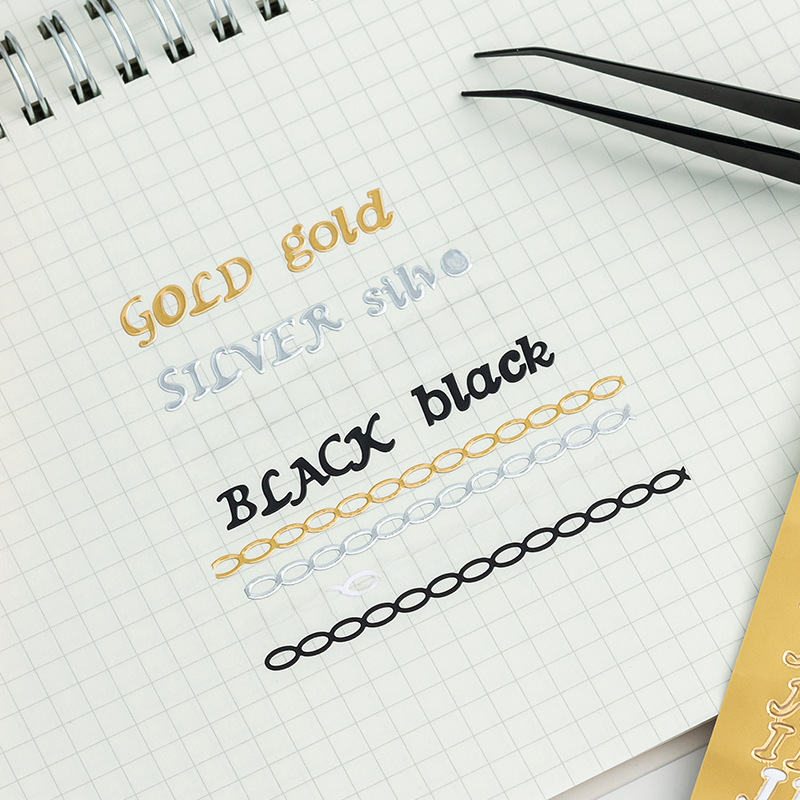 GOLD gold
SILVER silv
BLACK black